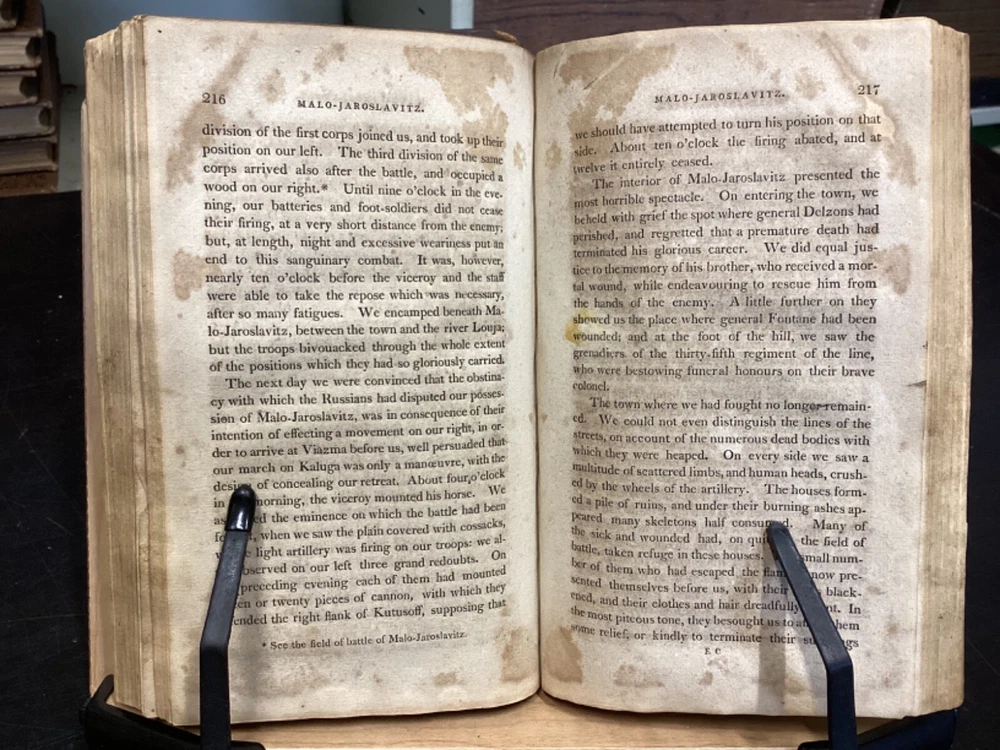 216
MALO-JAROSLAVITZ.
division of the first corps joined us, and took up their
position on our left. The third division of the same
corps arrived also after the battle, and occupied a
wood on our right.* Until nine o'clock in the eve-
ning, our batteries and foot-soldiers did not cease
their firing, at a very short distance from the enemy;
but, at length, night and excessive weariness put an
end to this sanguinary combat. It was, however,
nearly ten o'clock before the viceroy and the staff
were able to take the repose which was necessary,
after so many fatigues. We encamped beneath Ma-
lo-Jaroslavitz, between the town and the river Louja;
but the troops bivouacked through the whole extent
of the positions which they had so gloriously carried.
The next day we were convinced that the obstina-
cy with which the Russians had disputed our posses-
sion of Malo-Jaroslavitz, was in consequence of their
intention of effecting a movement on our right, in or-
der to arrive at Viazma before us, well persuaded that
our march on Kaluga was only a manœuvre, with the
design of concealing our retreat. About four o'clock
in morning, the viceroy mounted his horse. We
the eminence on which the battle had been
when we saw the plain covered with cossacks,
light artillery was firing on our troops: we al-
observed on our left three grand redoubts. On
preceding evening each of them had mounted
or twenty pieces of cannon, with which they
the right flank of Kutusoff, supposing that
* See the field of battle of Malo-Jaroslavitz.
MALO-JAROSLAVITZ.
217
we should have attempted to turn his position on that
side. About ten o'clock the firing abated, and at
twelve it entirely ceased.
The interior of Malo-Jaroslavitz presented the
most horrible spectacle. On entering the town, we
beheld with grief the spot where general Delzons had
perished, and regretted that a premature death had
terminated his glorious career. We did equal jus-
tice to the memory of his brother, who received a mor-
tal wound, while endeavouring to rescue him from
the hands of the enemy. A little further on they
showed us the place where general Fontane had been
wounded; and at the foot of the hill, we saw the
grenadiers of the thirty-fifth regiment of the line,
who were bestowing funeral honours on their brave
colonel.
The town where we had fought no longer remain-
ed. We could not even distinguish the lines of the
streets, on account of the numerous dead bodies with
which they were heaped. On every side we saw a
multitude of scattered limbs, and human heads, crush-
ed by the wheels of the artillery. The houses form-
ed a pile of ruins, and under their burning ashes ap-
peared many skeletons half consumed. Many of
the sick and wounded had, on the field of
battle, taken refuge in these houses. small num-
ber of them who had escaped the now pre-
sented themselves before us, with their black-
ened, and their clothes and hair dreadfully In
the most piteous tone, they besought us to
some relief, or kindly to terminate their
E e